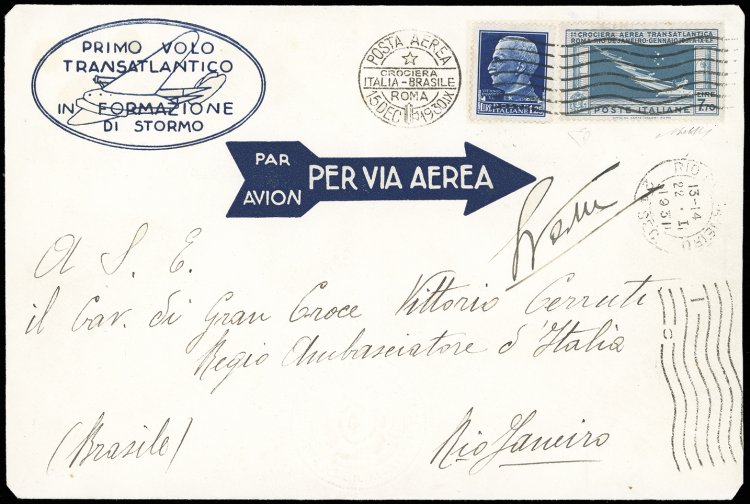 PRIMO VOLO
TRANSATLANTICO
IN FORMAZIONE
DI STORMO
POSTA AEREA
CROCIERA
ITALIA-BRASILE
ROMA
15 DEC 1930.IX
IIª CROCIERA AEREA TRANSATLANTICA
ROMA-RIO DE JANEIRO-GENNAIO 1931 A.IX E.F.
LIRE
7.70
POSTE ITALIANE
PAR
AVION
PER VIA AEREA
RIO
13-14
22 I
1931
A S. E.
il Cav. di Gran Croce Vittorio Cerruti
Regio Ambasciatore d'Italia
(Brasile)
Rio Janeiro